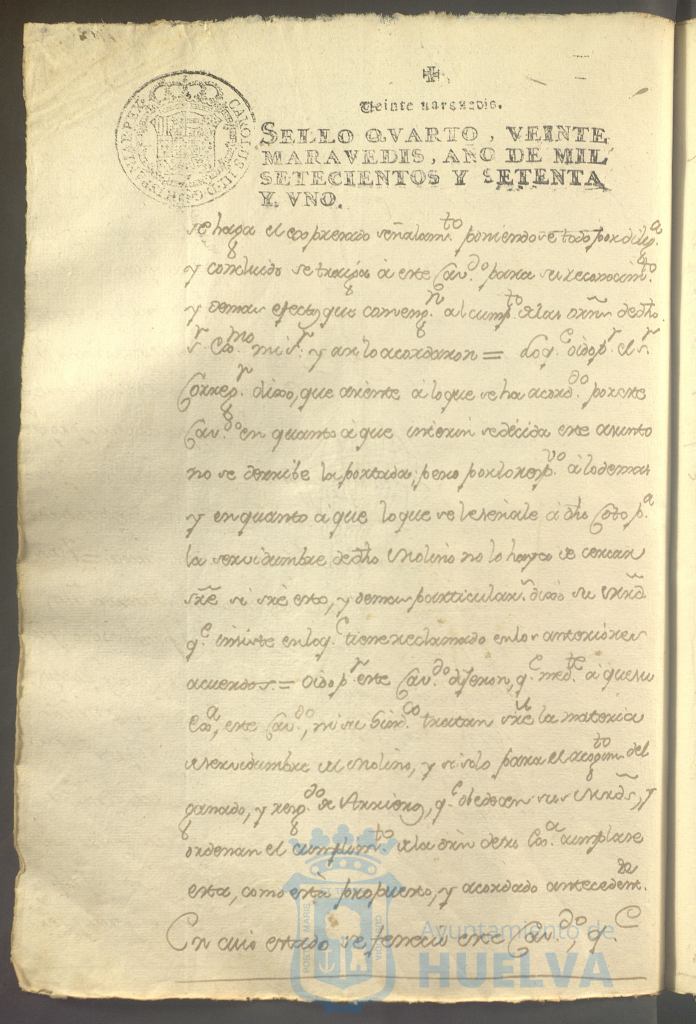 CAROLUS III D G HISPANIAR REX
Veinte maravedis.
SELLO QVARTO, VEINTE
MARAVEDIS, AÑO DE MIL
SETECIENTOS Y SETENTA
Y VNO.
se haga el expresado señalamto poniendose todo por dilixa
y concluido se traiga á este Cavdo para su reconocimto
y demas efectos que convengn al cumpto de las orns de dho
sr Exmo mi sr y asi lo acordaron = Lo qe oido pr el sr
Corregr dixo, que asiente á lo que se ha acordo por este
Cavdo en quanto á que interin se decida este asunto
no se derribe la portada; pero por lo respvo á lo demas
y en quanto á que lo que se le señale á dho Coto pa
la servidumbre de dho Molino no lo haya de cercar
sre si sre esto, y demas particulars dixo su Mrd
qe insiste en lo qe tiene reclamado en los anteriores
acuerdos = Oido pr este Cavdo dixeron, qe medte á que su
Exa, este Cavdo, ni su Sindco tratan sre la materia
de servidumbre del Molino, y si solo para el del
ganado, y de Arrieros, qe obedecen sus Mrds, y
ordenan el cumplimto de la orn de su Exa cumplase
esta, como está propuesto, y acordado antecedente.
En cuio estado se feneció este Cavdo, qe
Ayuntamiento de
HUELVA